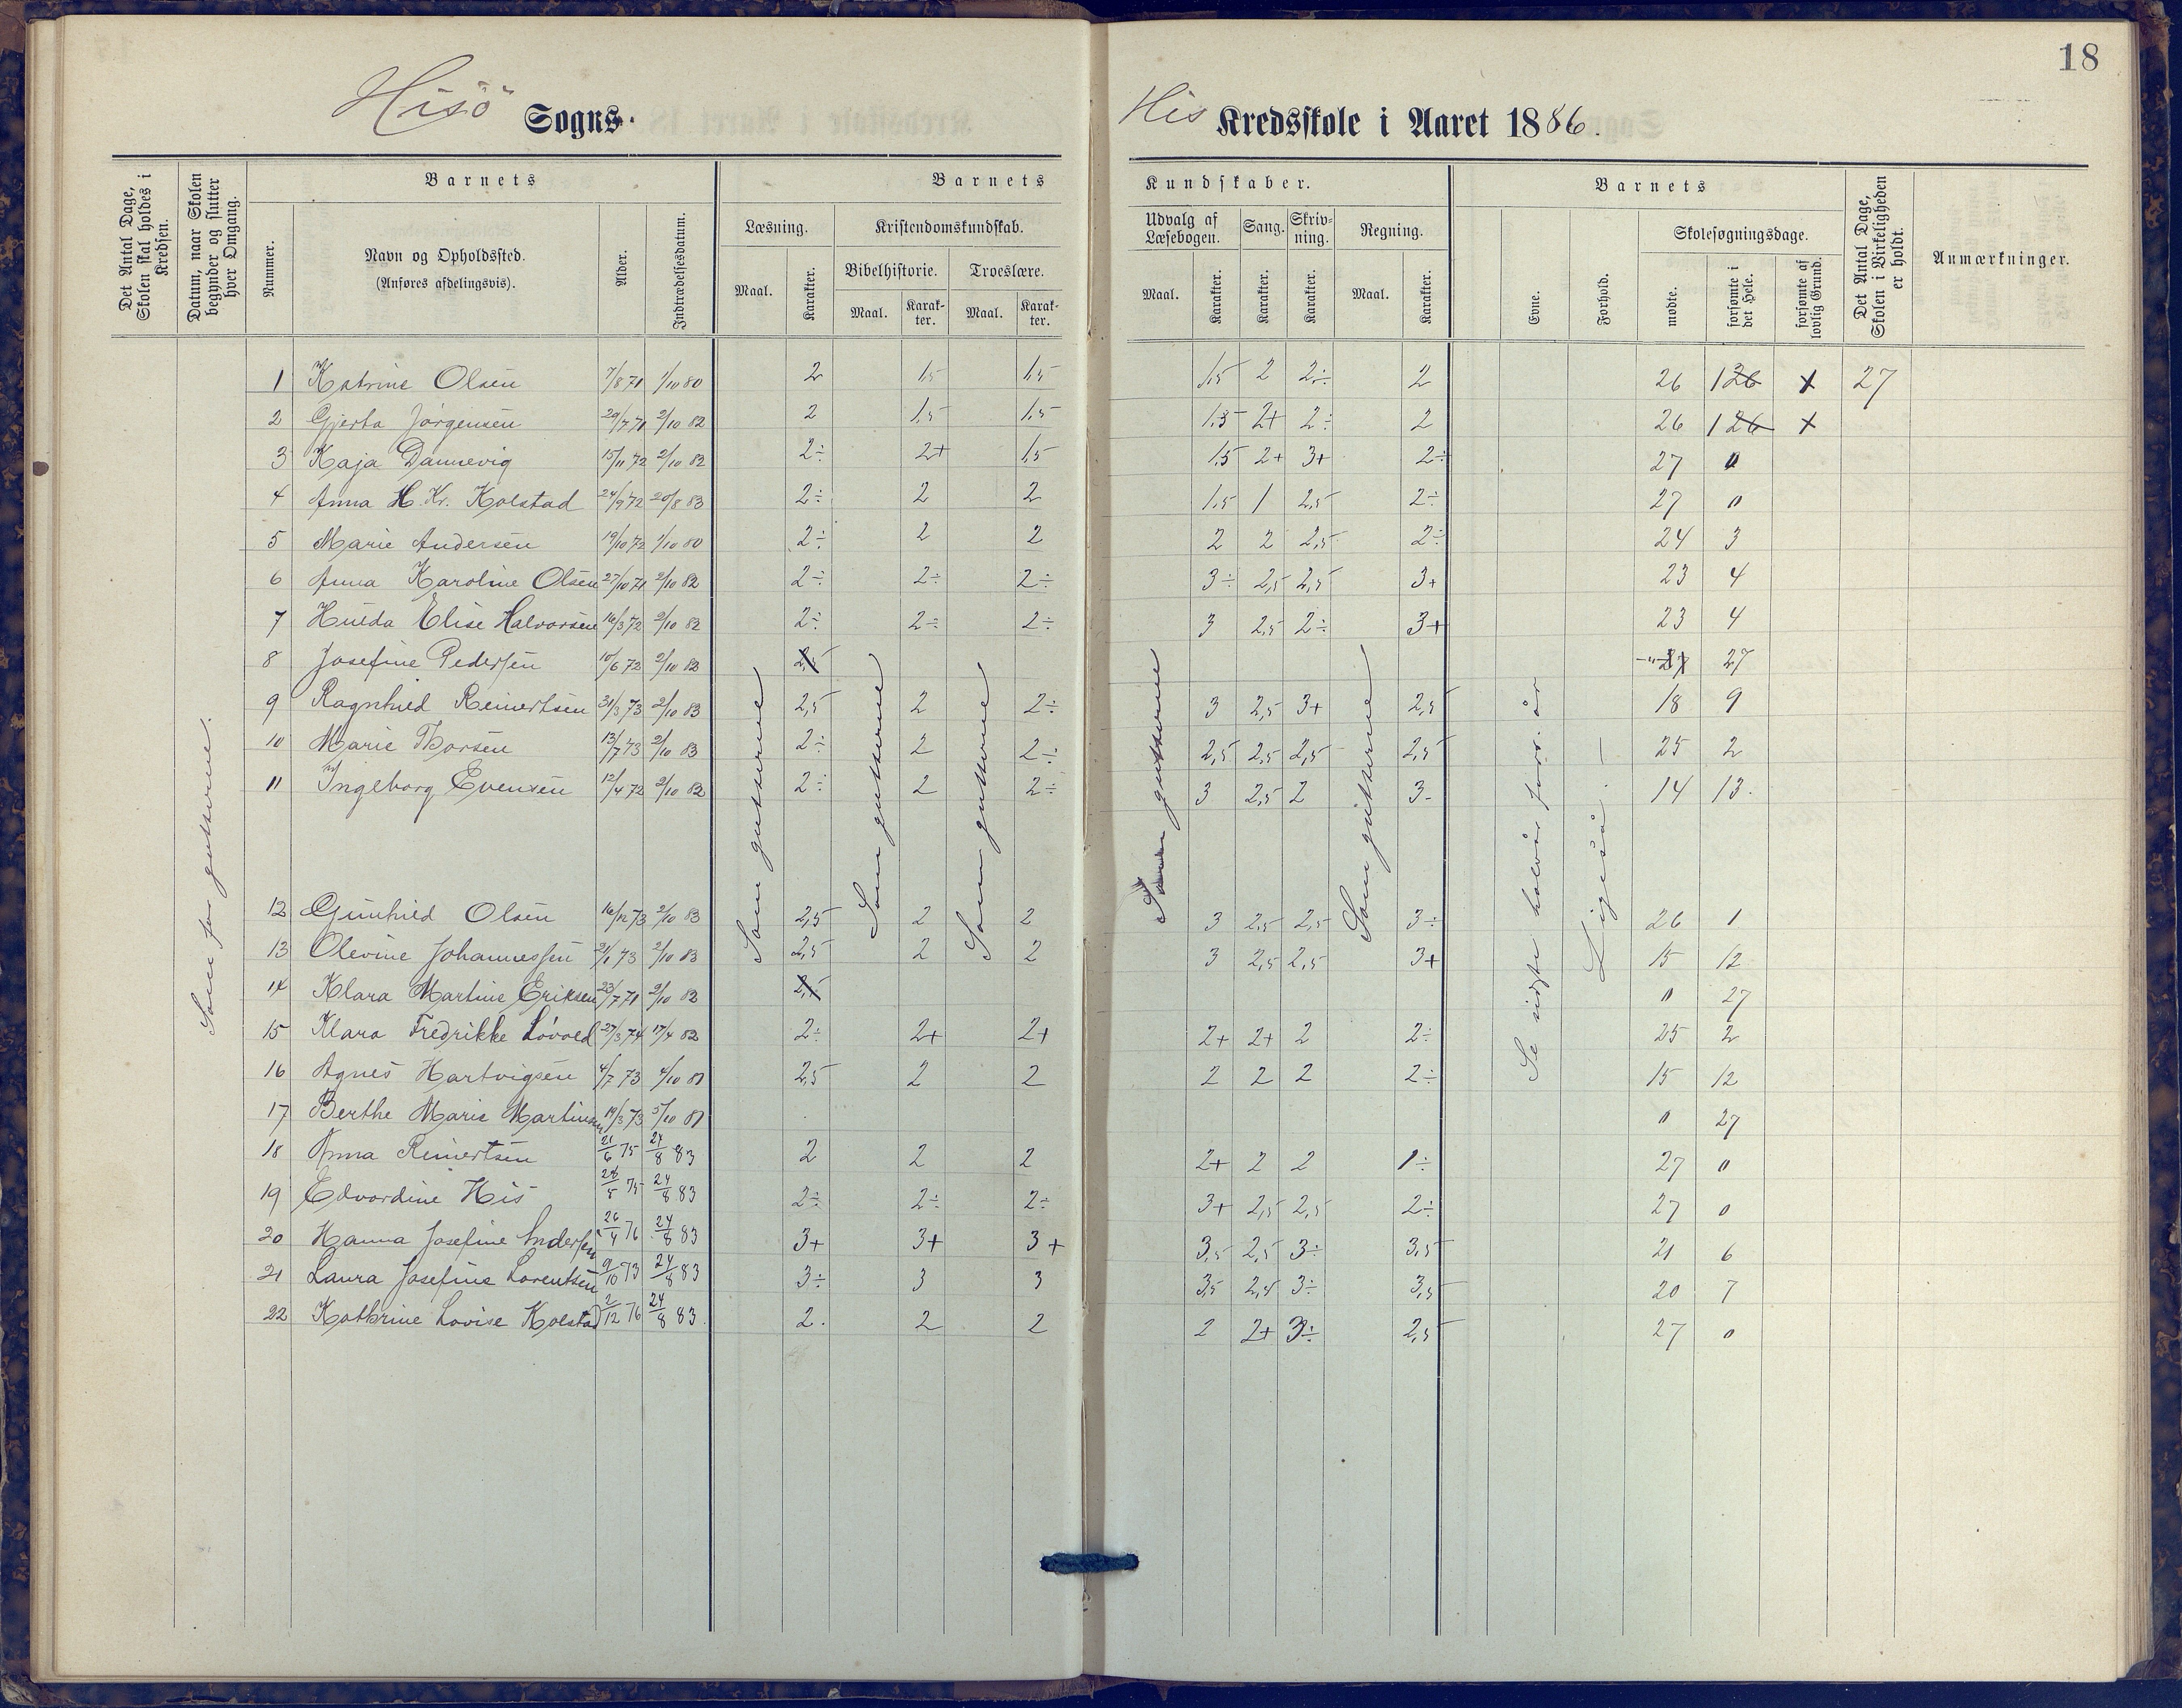 18
Hisö Sogns
His Kredsskole i Aaret 1886.
Det Antal Dage, Skolen skal holdes i Kredsen.
Datum, naar Skolen begynder og slutter hver Omgang.
Barnets
Nummer.
Navn og Opholdssted.
(Anføres afdelingsvis).
Alder.
Indtrædelsesdatum.
Barnets
Læsning.
Maal.
Karakter.
Kristendomskundskab.
Bibelhistorie.
Maal.
Karak-
ter.
Troeslære.
Maal.
Karak-
ter.
Kundskaber.
Udvalg af
Læsebogen.
Maal.
Karakter.
Sang.
Karakter.
Skriv-
ning.
Karakter.
Regning.
Maal.
Karakter.
Barnets
Evne.
Forhold.
Skolesøgningsdage.
mødte.
forsømte i det Hele.
forsømte af lovlig Grund.
Det Antal Dage, Skolen i Virkeligheden er holdt.
Anmærkninger.
Som for gutterne.
Som gutterne
Som gutterne
Som gutterne
Som gutterne
Som gutterne
Se sidste halvår forr. år
Ligeså. —
1 Katrine Olsen 7/8 71 1/10 80 2 1,5 1,5 1,5 2 2÷ 2 26 126 x 27
2 Gjerta Jörgensen 29/7 71 2/10 82 2 1,5 1,5 1,5 2+ 2÷ 2 26 126 x
3 Kaja Dannevig 15/11 72 2/10 82 2÷ 2+ 1,5 1,5 2+ 3+ 2÷ 27 0
4 Anna H. Kr. Kolstad 24/9 72 20/8 83 2÷ 2 2 1,5 1 2,5 2÷ 27 0
5 Marie Andersen 19/10 72 1/10 80 2÷ 2 2 2 2 2,5 2÷ 24 3
6 Anna Karoline Olsen 27/10 71 2/10 82 2÷ 2÷ 2÷ 3÷ 2,5 2,5 3+ 23 4
7 Hulda Elise Halvorsen 16/3 72 2/10 82 2÷ 2÷ 2÷ 3 2,5 2÷ 3+ 23 4
8 Josefine Pedersen 10/6 72 2/10 82 2,5 -"- 27 27
9 Ragnhild Reinertsen 31/3 73 2/10 83 2,5 2 2÷ 3 2,5 3+ 2,5 18 9
10 Marie Thorsen 13/7 73 2/10 83 2÷ 2 2÷ 2,5 2,5 2,5 2,5 25 2
11 Ingeborg Evensen 12/4 72 2/10 82 2÷ 2 2÷ 3 2,5 2 3- 14 13.
12 Gunhild Olsen 16/12 73 2/10 83 2,5 2 2 3 2,5 2,5 3÷ 26 1
13 Olevine Johannessen 21/1 73 2/10 83 2,5 2 2 3 2,5 2,5 3+ 15 12
14 Klara Martine Eriksen 23/7 71 2/10 82 2,5 0 27
15 Klara Fredrikke Lövold 27/3 74 17/4 82 2÷ 2+ 2+ 2+ 2+ 2 2÷ 25 2
16 Agnes Hartvigsen 4/7 73 4/10 81 2,5 2 2 2 2 2 2÷ 15 12
17 Berthe Marie Martinsen 19/3 73 5/10 81 0 27
18 Anna Reinertsen 21/6 75 24/8 83 2 2 2 2+ 2 2 1÷ 27 0
19 Edvardine His 28/5 75 24/8 83 2÷ 2÷ 2÷ 3+ 2,5 2,5 2÷ 27 0
20 Hanna Josefine Andersen 26/4 76 24/8 83 3+ 3+ 3+ 3,5 2,5 3÷ 3,5 21 6
21 Laura Josefine Lorentsen 9/10 73 24/8 83 3÷ 3 3 3,5 2,5 3÷ 3,5 20 7
22 Kathrine Lovise Kolstad 2/12 76 24/8 83 2. 2 2 2 2+ 3÷ 2,5 27 0